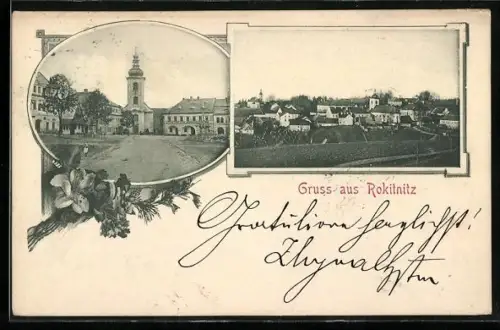 Gruss aus Rokitnitz
Gratuliere herzlichst!